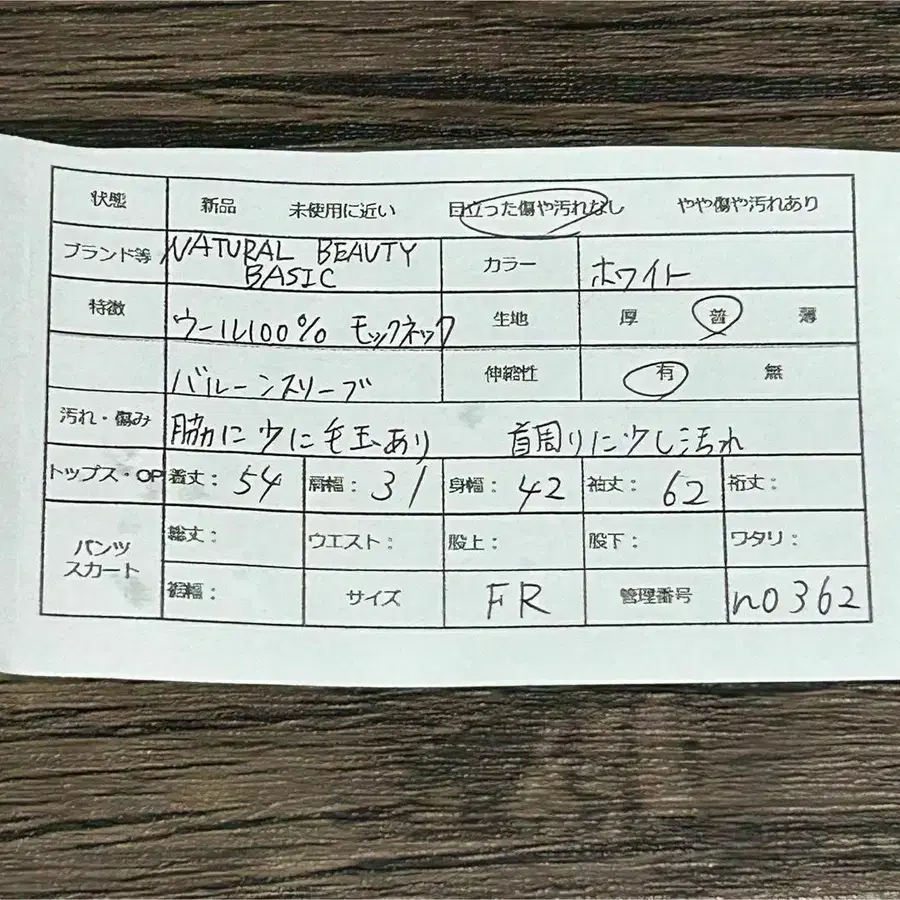 状態 新品 未使用に近い 目立った傷や汚れなし やや傷や汚れあり
ブランド等 NATURAL BEAUTY BASIC カラー ホワイト
特徴 ウール100% モックネック 生地 厚 普 薄
バルーンスリーブ 伸縮性 有 無
汚れ・傷み 脇に少に毛玉あり 首周りに少し汚れ
トップス・OP 着丈: 54 肩幅: 31 身幅: 42 袖丈: 62 裄丈:
パンツ スカート 総丈: ウエスト: 股上: 股下: ワタリ:
裾幅: サイズ FR 管理番号 no362